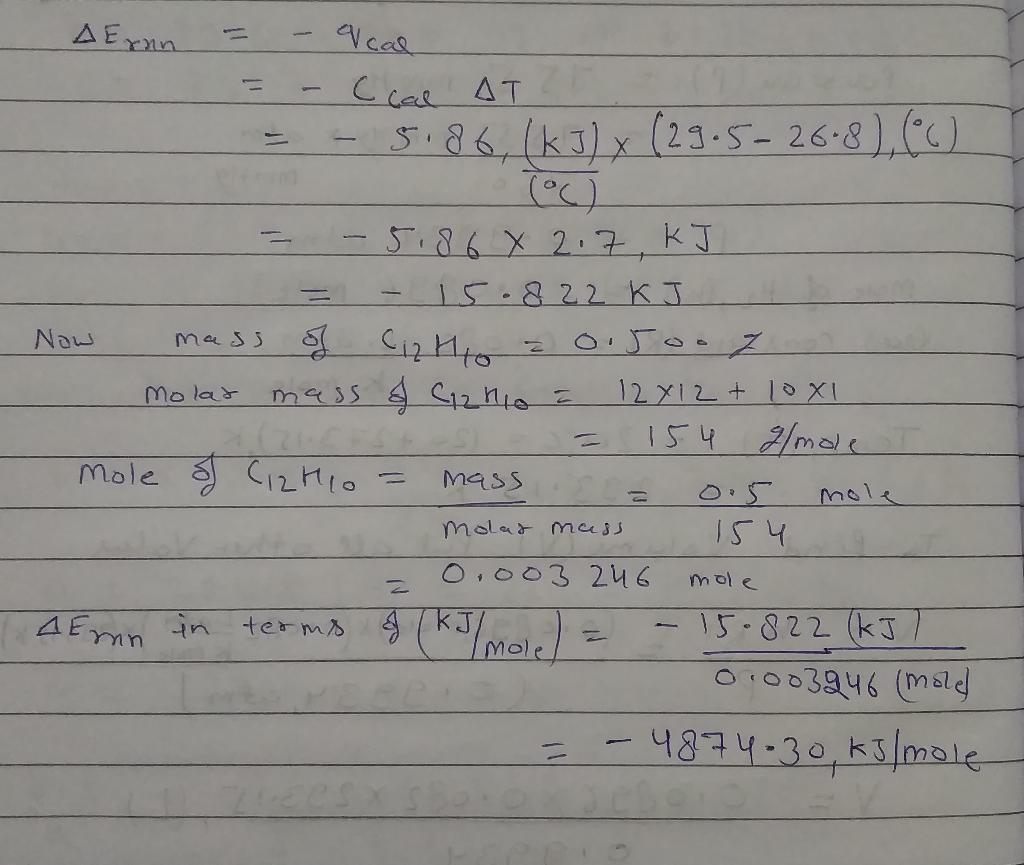 ΔErxn = - qcal
= - Ccal ΔT
= - 5.86, (kJ)/(°C) x (29.5 - 26.8), (°C)
= - 5.86 x 2.7, KJ
= - 15.822 KJ
Now mass of C12H10 = 0.500 g
molar mass of C12H10 = 12x12 + 10x1
= 154 g/mole
Mole of C12H10 = mass / molar mass = 0.5 / 154 mole
= 0.003246 mole
ΔErxn in terms of (kJ/mole) = - 15.822 (kJ) / 0.003246 (mole)
= - 4874.30, kJ/mole